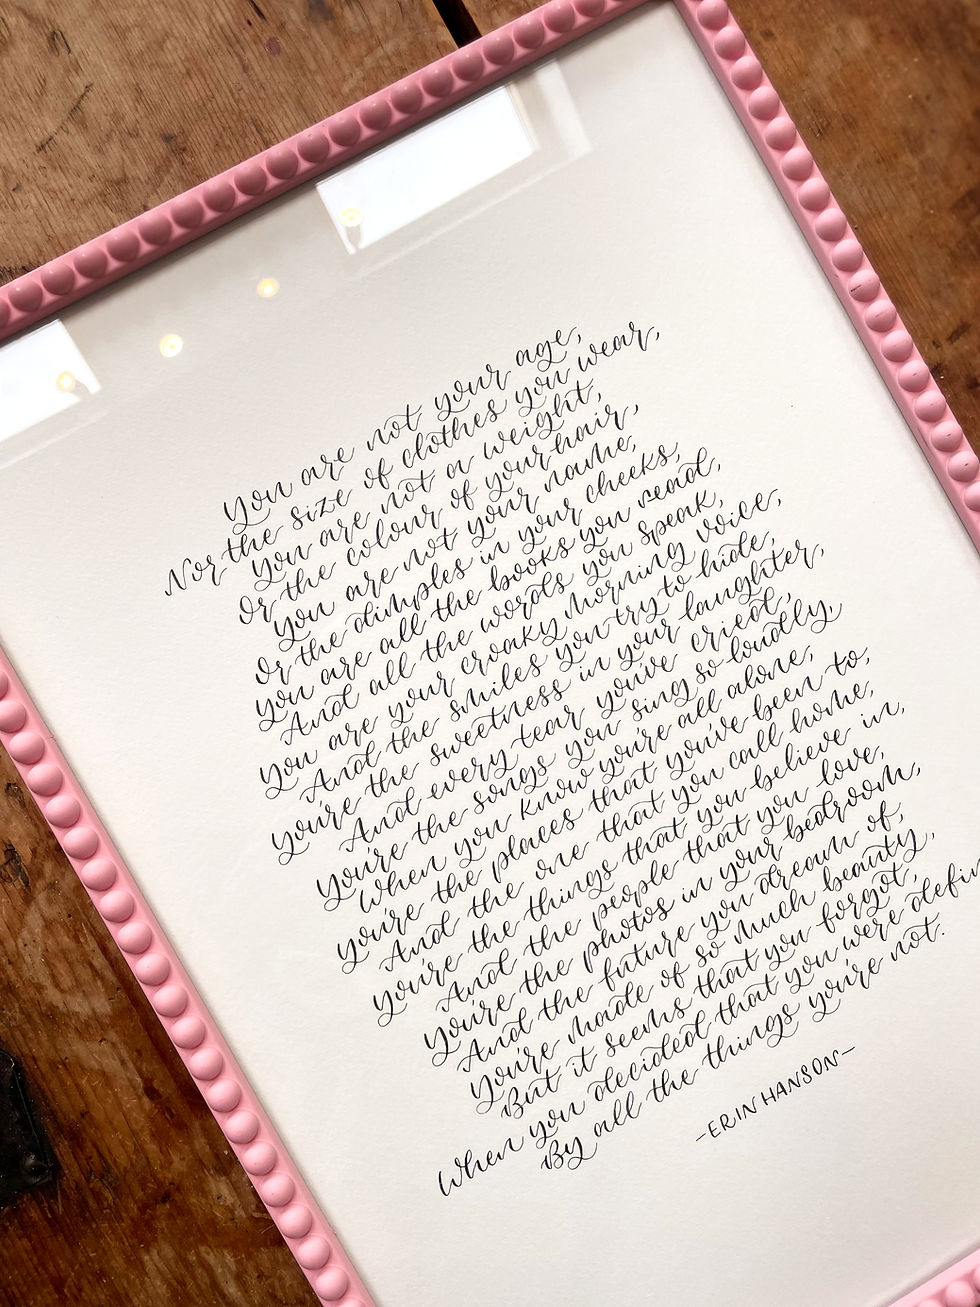 You are not your age,
Nor the size of clothes you wear,
You are not a weight,
Or the colour of your hair,
You are not your name,
Or the dimples in your cheeks,
You are all the books you read,
And all the words you speak,
You are your croaky morning voice,
And the smiles you try to hide,
You're the sweetness in your laughter,
And every tear you've cried,
You're the songs you sing so loudly,
When you know you're all alone,
You're the places that you've been to,
And the one that you call home,
You're the things that you believe in,
And the people that you love,
You're the photos in your bedroom,
And the future you dream of,
You're made of so much beauty,
But it seems that you forgot,
When you decided that you were defin
By all the things you're not.
-ERIN HANSON-